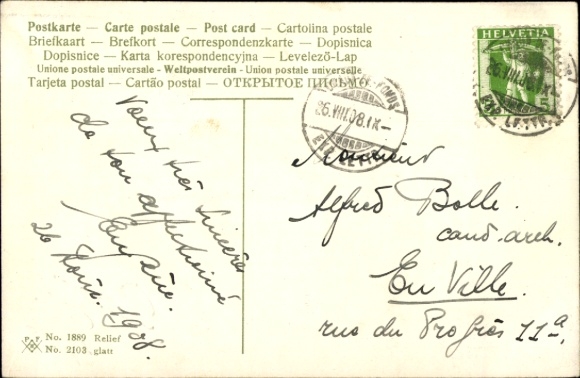 Postkarte — Carte postale — Post card — Cartolina postale
Briefkaart — Brefkort — Correspondenzkarte — Dopisnica
Dopisnice — Karta korespondencyjna — Levelező-Lap
Unione postale universale - Weltpostverein - Union postale universelle
Tarjeta postal — Cartão postal — ОТКРЫТОЕ ПИСЬМО
HELVETIA
5
26.VIII.08.IX-
LETTR.
26.VIII.08.IX-
LETTR.
Voeux très sincères
de ton affectionné
26 Août. 1908.
Monsieur
Alfred Bolle.
cand. arch.
En Ville.
rue du Progrès 11a.
P.F.B
No. 1889 Relief
No. 2103 glatt